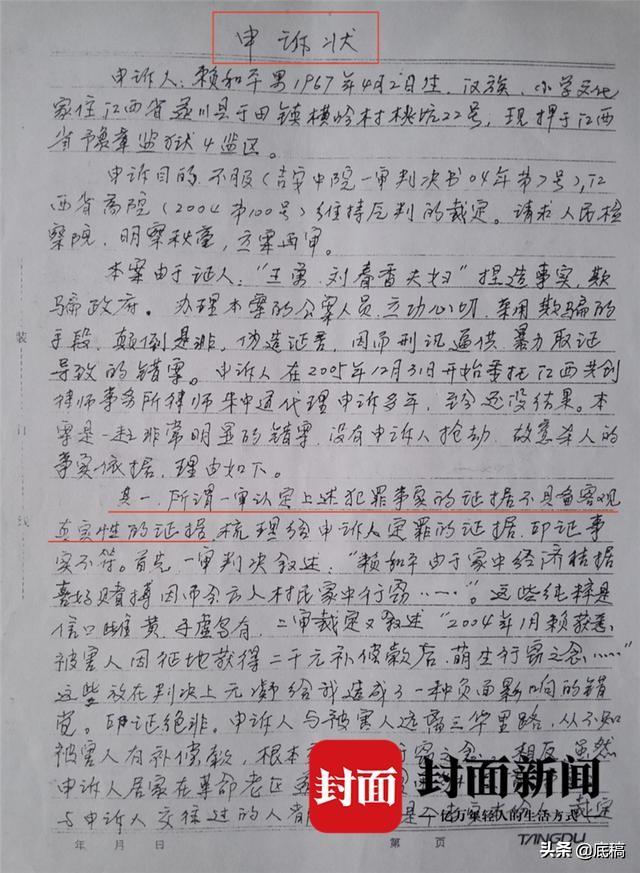 申诉状
申诉人：赖和平 男 1967年4月2日生，汉族，小学文化
家住江西省遂川县于田镇横岭村桃坑22号，现押于江西
省豫章监狱4监区。
申诉目的，不服（吉安中院一审判决书04年第7号），江
西省高院（2004第100号）维持原判的裁定。请求人民检
察院，明察秋毫，立案再审。
本案由于证人："王勇、刘春香夫妇"捏造事实，欺
骗政府。办理本案的公案人员，立功心切，采用欺骗的
手段，颠倒是非，伪造证言，因而刑讯逼供，暴力取证
导致的错案。申诉人在2005年12月31日开始委托江西共创
律师事务所律师朱中道代理申诉多年，至今还没结果。本
案是一起非常明显的错案，没有申诉人抢劫、故意杀人的
事实依据，理由如下。
其一，所谓一审认定上述犯罪事实的证据不具备客观
真实性的证据，梳理给申诉人定罪的证据，印证事
实不符。首先，一审判决叙述："赖和平由于家中经济桔据
喜好赌搏因而多次入村民家中行窃……"。这些纯粹是
信口雌黄，子虚乌有，二审裁定又叙述"2004年1月赖
被害人因征地获得二千元补偿款后，萌生行窃之念……"
这些放在判决上无疑给我造成了一种负面影响的错
觉。印证绝非。申诉人与被害人远离三华里路，从不知
被害人有补偿款，根本 行窃之念，相反，虽然
申诉人居家在革命老区
与申诉人交往过的人都
封面
封面新闻
亿万年轻人的生活方式
装
订
线
年 月 日 第 页
TANGDU
头条 @底稿